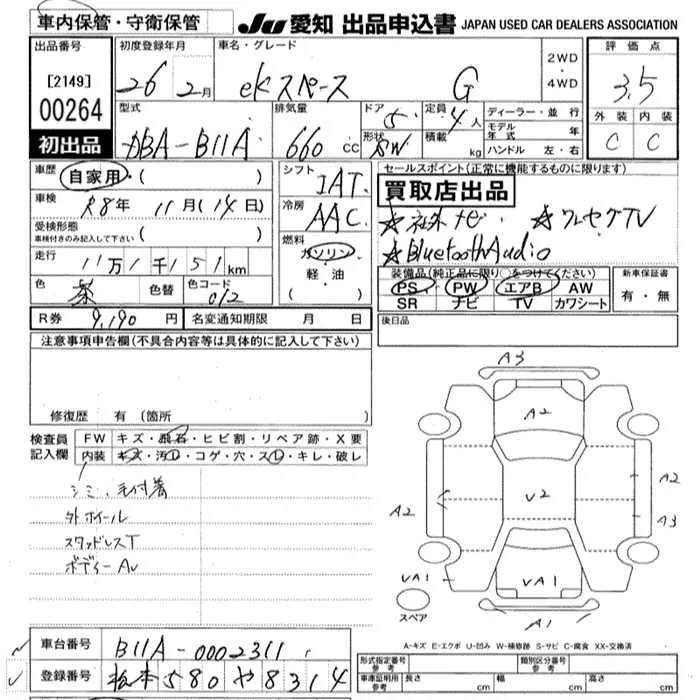 車内保管・守衛保管
JU 愛知 出品申込書 JAPAN USED CAR DEALERS ASSOCIATION
出品番号
[2149]
00264
初出品
初度登録年月
26 2月
車名・グレード
ekスペース G
2WD
・
4WD
評価点
3.5
外装 内装
C C
型式
DBA-B11A
排気量
660 cc
ドア
5
形状
SW
定員
4人
積載
kg
ディーラー・並行
モデル年式 年
ハンドル 左・右
車歴
自家用・( )
車検
R8年 11月(14日)
受検形態
車検付きのみ記入して下さい ( )
走行
11万1千151km
色
茶
色替
色コード
シフト
IAT
冷房
AAC
燃料
ガソリン・
軽・油
セールスポイント(正常に機能するものに限ります)
買取店出品
☆社外ナビ ☆ワンセグTV
☆Bluetooth Audio
装備品(純正品に限り○をつけてください)
PS PW エアB AW
SR ナビ TV カワシート
新車保証書
有・無
R券 9,190 円 名変通知期限 月 日
後日品
注意事項申告欄(不具合内容等は具体的に記入して下さい)
修復歴 有 (箇所
検査員
記入欄
FW キズ・飛石・ヒビ割・リペア跡・X要
内装 キズ・汚れ・コゲ・穴・スレ・キレ・破レ
シミ、毛付着
外ホイール
スタッドレスT
ボディーAU
A3
A2
A2
V2
A2
A3
VA1
VA1
A1
スペア
A-キズ E-エクボ U-凹み W-補修跡 S-サビ C-腐食 XX-交換済
車台番号 B11A-0002311
登録番号 松本580や8314
形式指定番号
参考
類別区分番号
参考
車庫証明用
参考
長さ cm 幅 cm 高さ cm